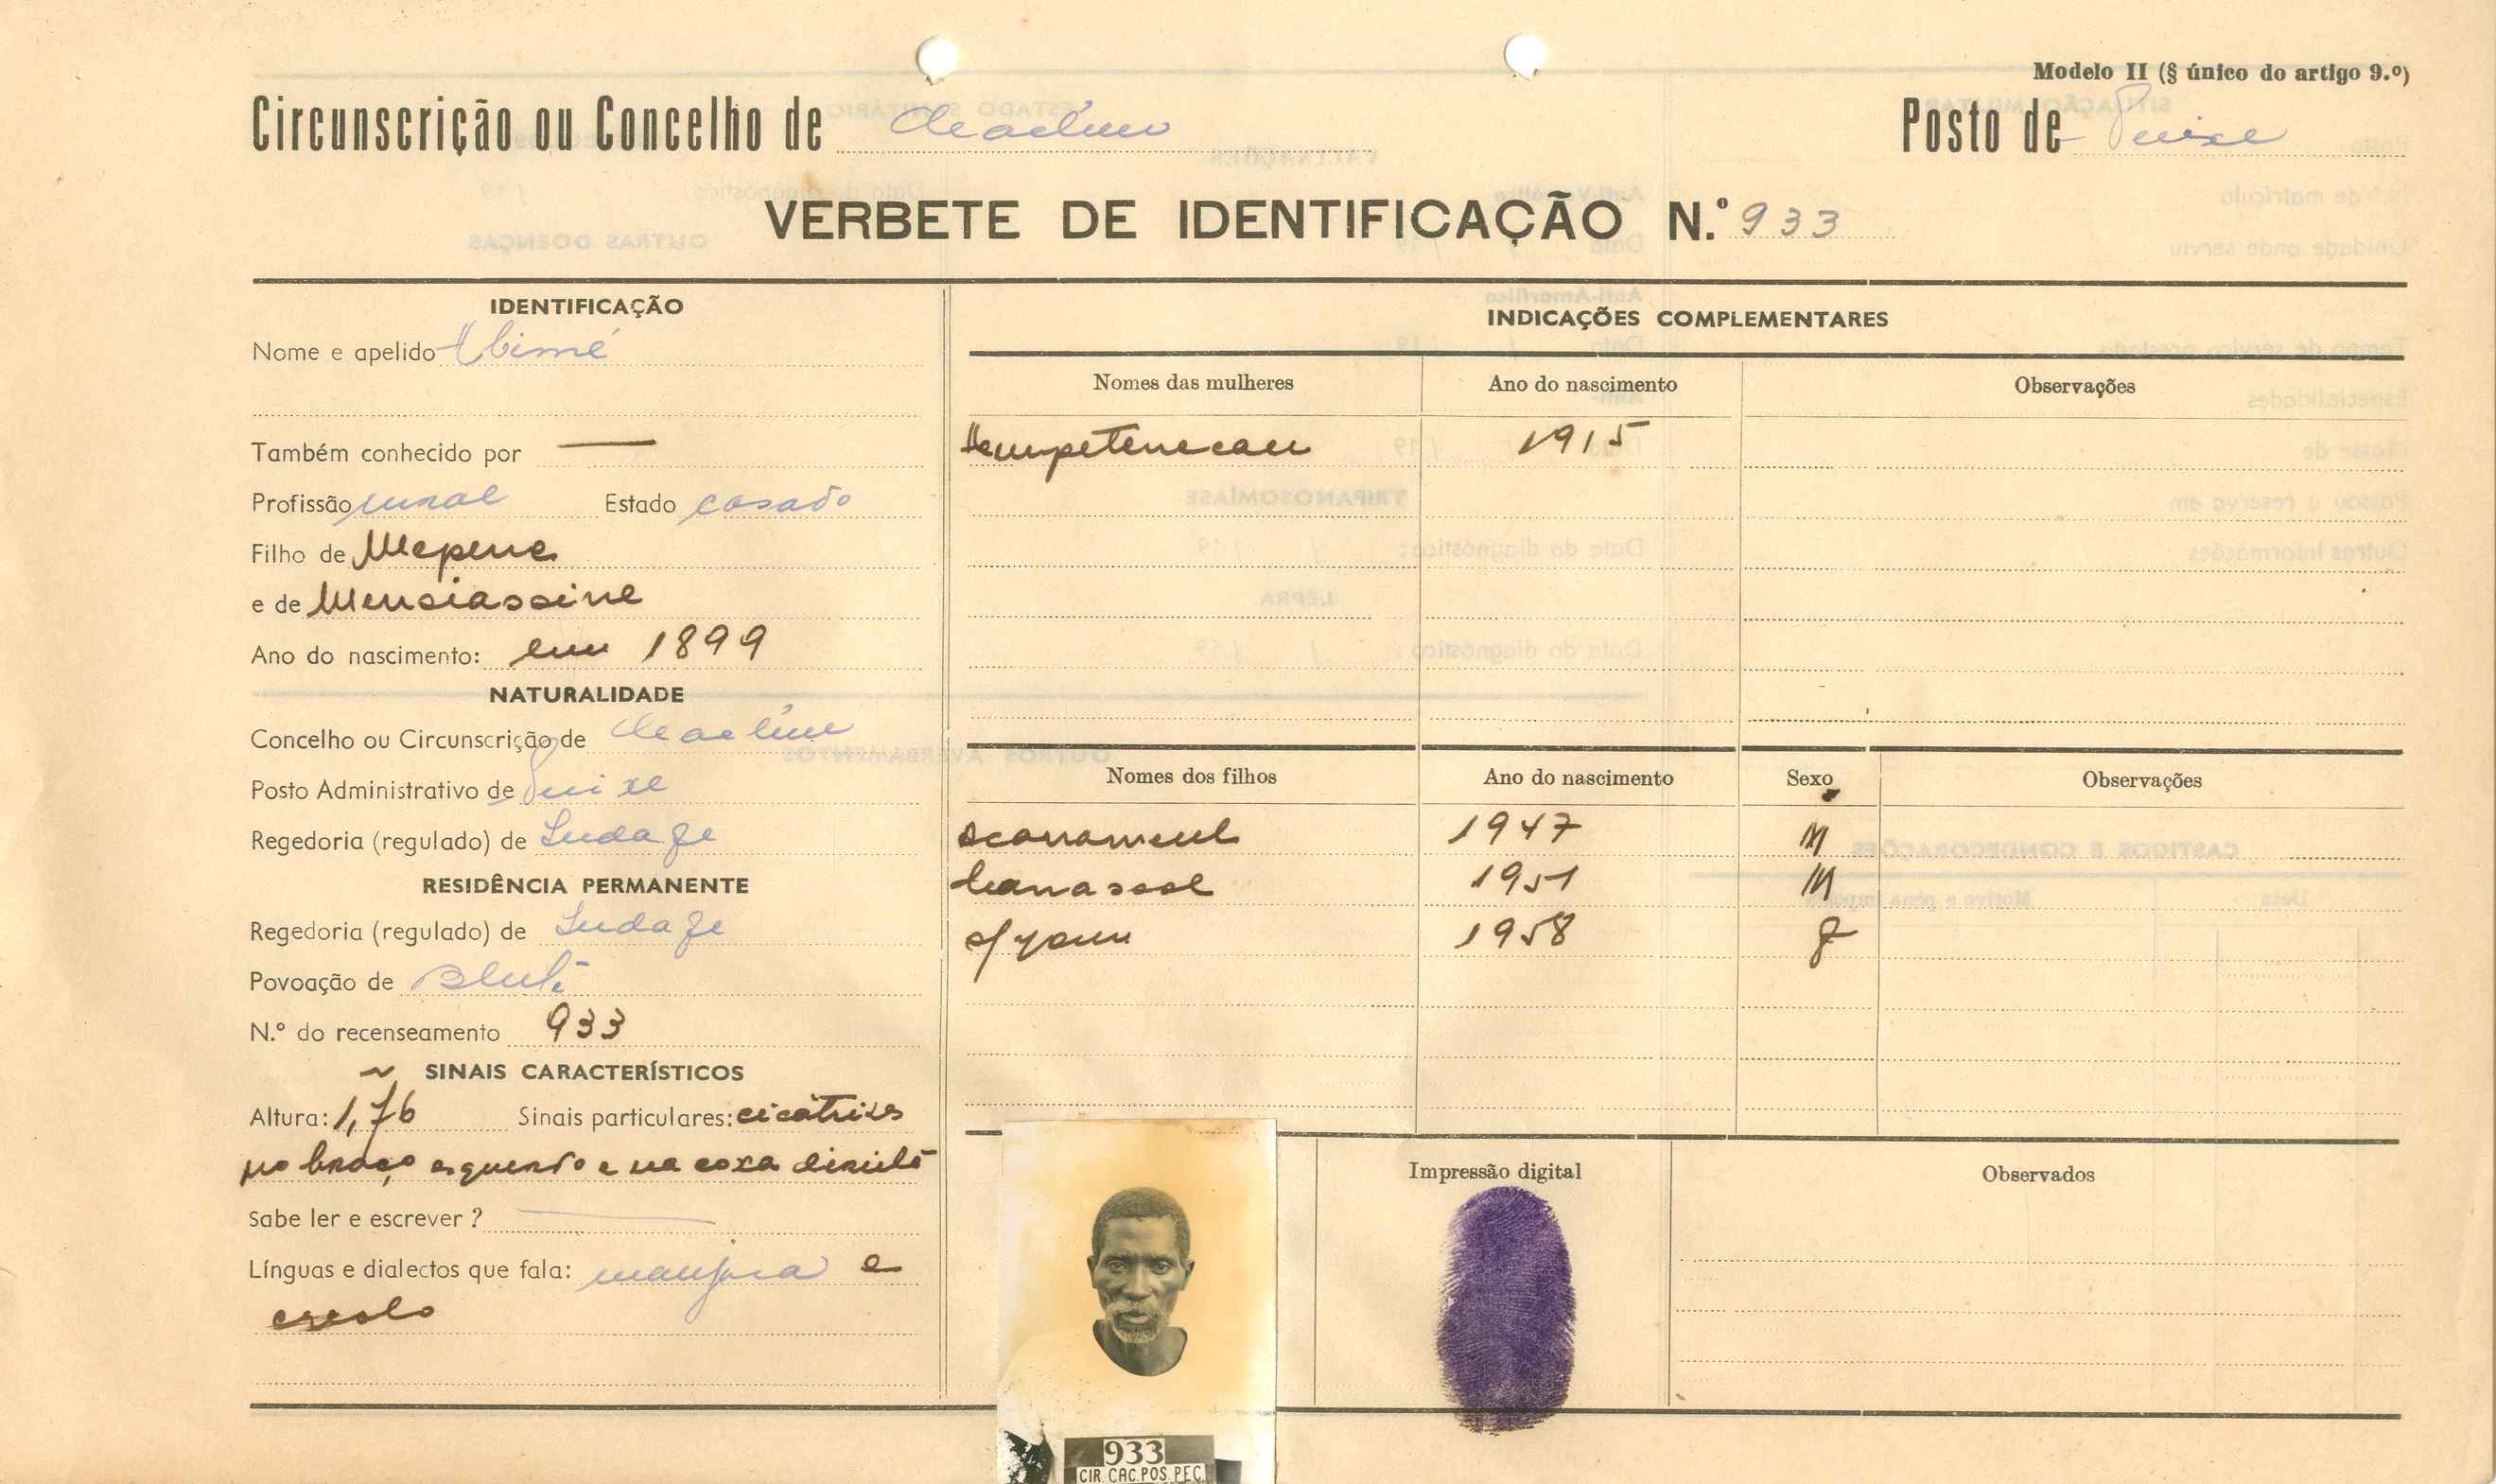 Modelo II (§ único do artigo 9.º)
Circunscrição ou Concelho de
Posto de
VERBETE DE IDENTIFICAÇÃO N.º 933
IDENTIFICAÇÃO
Nome e apelido
Também conhecido por —
Profissão rural Estado casado
Filho de
e de
Ano do nascimento: em 1899
NATURALIDADE
Concelho ou Circunscrição de
Posto Administrativo de
Regedoria (regulado) de
RESIDÊNCIA PERMANENTE
Regedoria (regulado) de
Povoação de
N.º do recenseamento 933
SINAIS CARACTERÍSTICOS
Altura: 1,76 Sinais particulares: cicatrizes
no braço esquerdo e na coxa direita
Sabe ler e escrever ? —
Línguas e dialectos que fala: manjaca e
creolo
INDICAÇÕES COMPLEMENTARES
Nomes das mulheres Ano do nascimento Observações
1915
Nomes dos filhos Ano do nascimento Sexo Observações
1947 M
1951 M
1958 f
Impressão digital
Observados
933
CIR. CAC. POS. PEC.